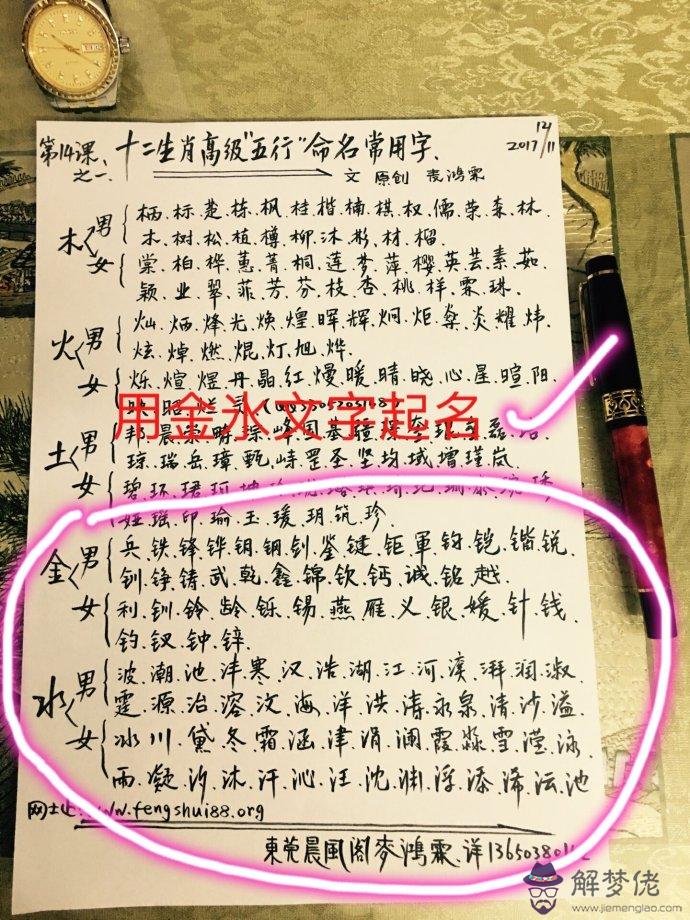 第14课、十二生肖高级"五行"命名常用字、
之一、
12/11
2017
文 原创 麦鸿霖
木
男 柄.标.楚.栋.枫.桂.楷.楠.棋.权.儒.荣.森.林.
木.树.松.植.樽.柳.沐.彬.材.榴.
女 棠.柏.桦.蕙.菁.桐.莲.梦.萍.樱.英.芸.素.茹.
颖.业.翠.菲.芳.芬.枝.杏.桃.样.霖.珠.
火
男 灿.炳.烽.光.焕.煌.晖.辉.炯.炬.燊.炎.耀.炜.
炫.焯.燃.焜.灯.旭.烨.
女 烁.煊.煜.丹.晶.红.熳.暖.晴.晓.心.星.暄.阳.
映.昭.烂.
用金水文字起名
土
男 邦.晨.峰.固.基.磊.
琼.瑞.岳.璋.甄.峙.罡.圣.坚.均.域.墡.瑾.岚.
女 碧.环.珺.珂.坤.
娅.瑶.印.瑜.玉.瑗.玥.筑.珍.
金
男 兵.铁.锋.铧.钥.钢.钊.鉴.键.钜.軍.钧.铠.锴.锐.
钏.铮.铸.武.乾.鑫.锦.钦.钙.诚.铭.越.
女 利.钏.铃.龄.铄.锡.燕.雁.义.银.媛.针.钱.
钧.钗.钟.锌.
水
男 波.潮.池.沣.寒.汉.浩.湖.江.河.溪.湃.润.淑.
霆.源.治.溶.汶.海.洋.洪.涛.永.泉.清.沙.溢.
女 冰.川.黛.冬.霜.涵.津.涓.澜.霞.淼.雪.滢.泳.
雨.凝.汐.沐.汗.沁.汪.沈.渊.浮.添.浠.沄.池
网址:www.fengshui88.org
東莞晨風阁麥鸿霖.详136503801
解梦佬
www.jiemenglao.com